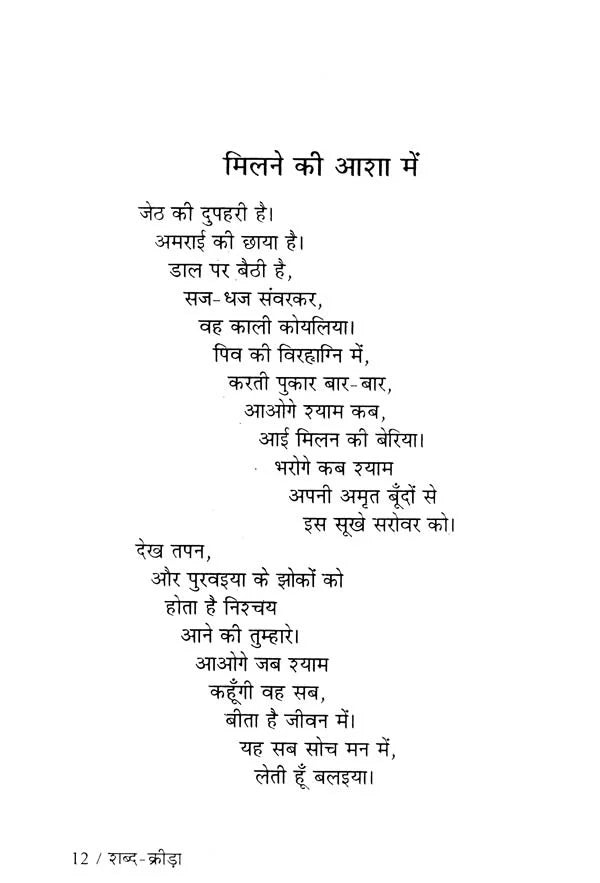 मिलने की आशा में
जेठ की दुपहरी है।
अमराई की छाया है।
डाल पर बैठी है,
सज-धज संवरकर,
वह काली कोयलिया।
पिव की विरहाग्नि में,
करती पुकार बार-बार,
आओगे श्याम कब,
आई मिलन की बेरिया।
भरोगे कब श्याम
अपनी अमृत बूँदों से
इस सूखे सरोवर को।
देख तपन,
और पुरवइया के झोकों को
होता है निश्चय
आने की तुम्हारे।
आओगे जब श्याम
कहूँगी वह सब,
बीता है जीवन में।
यह सब सोच मन में,
लेती हूँ बलइया।
12 / शब्द-क्रीड़ा